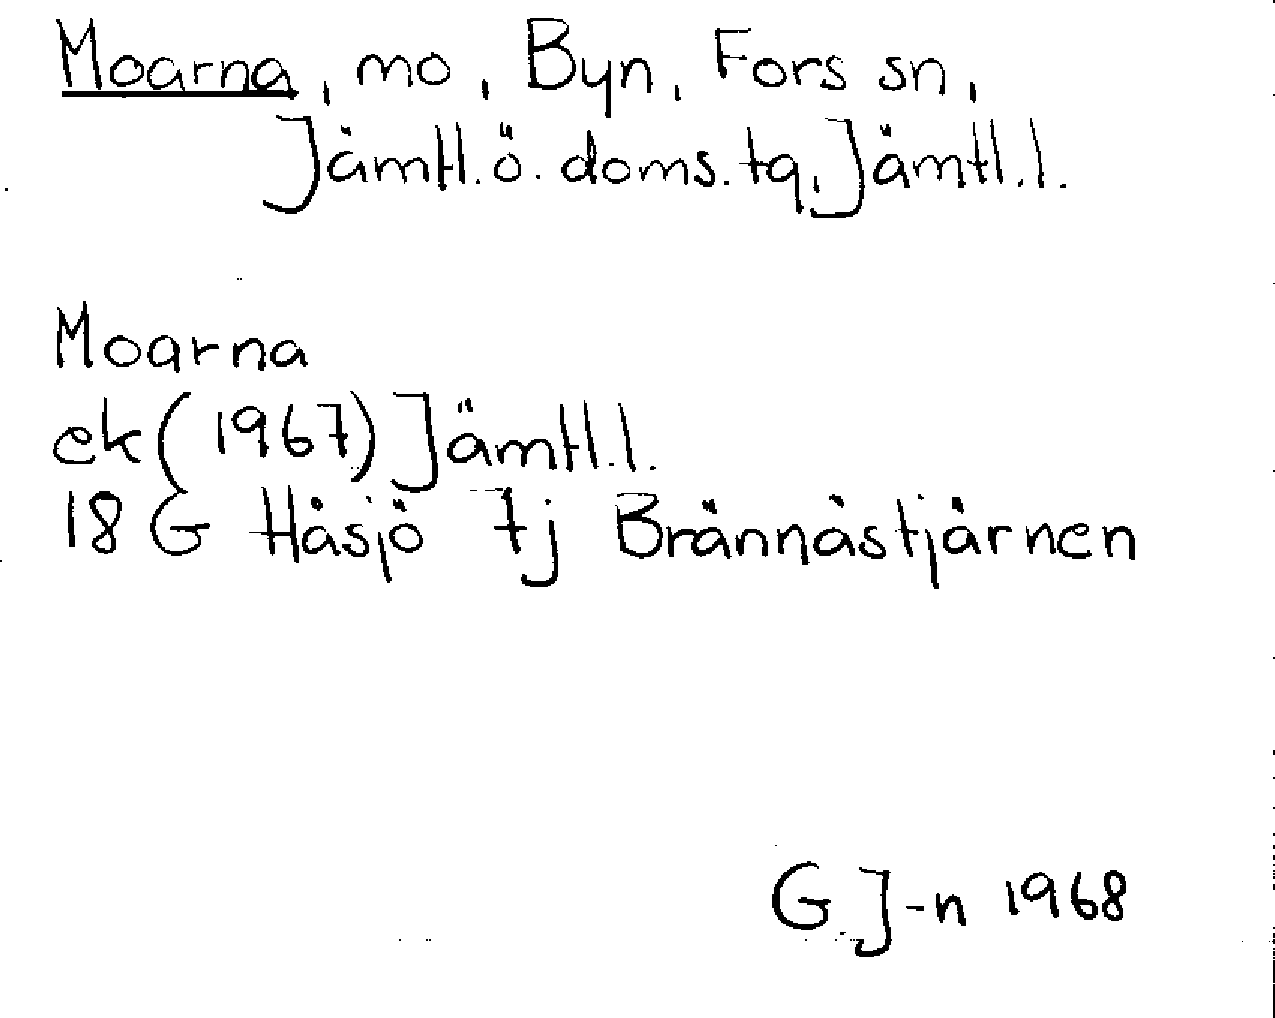 Moarna, mo, Byn, Fors sn,
Jämtl. ö. doms. tg, Jämtl. l.
Moarna
ek (1967) Jämtl. l.
18 G Håsjö 7j Brännåstjärnen
G J-n 1968